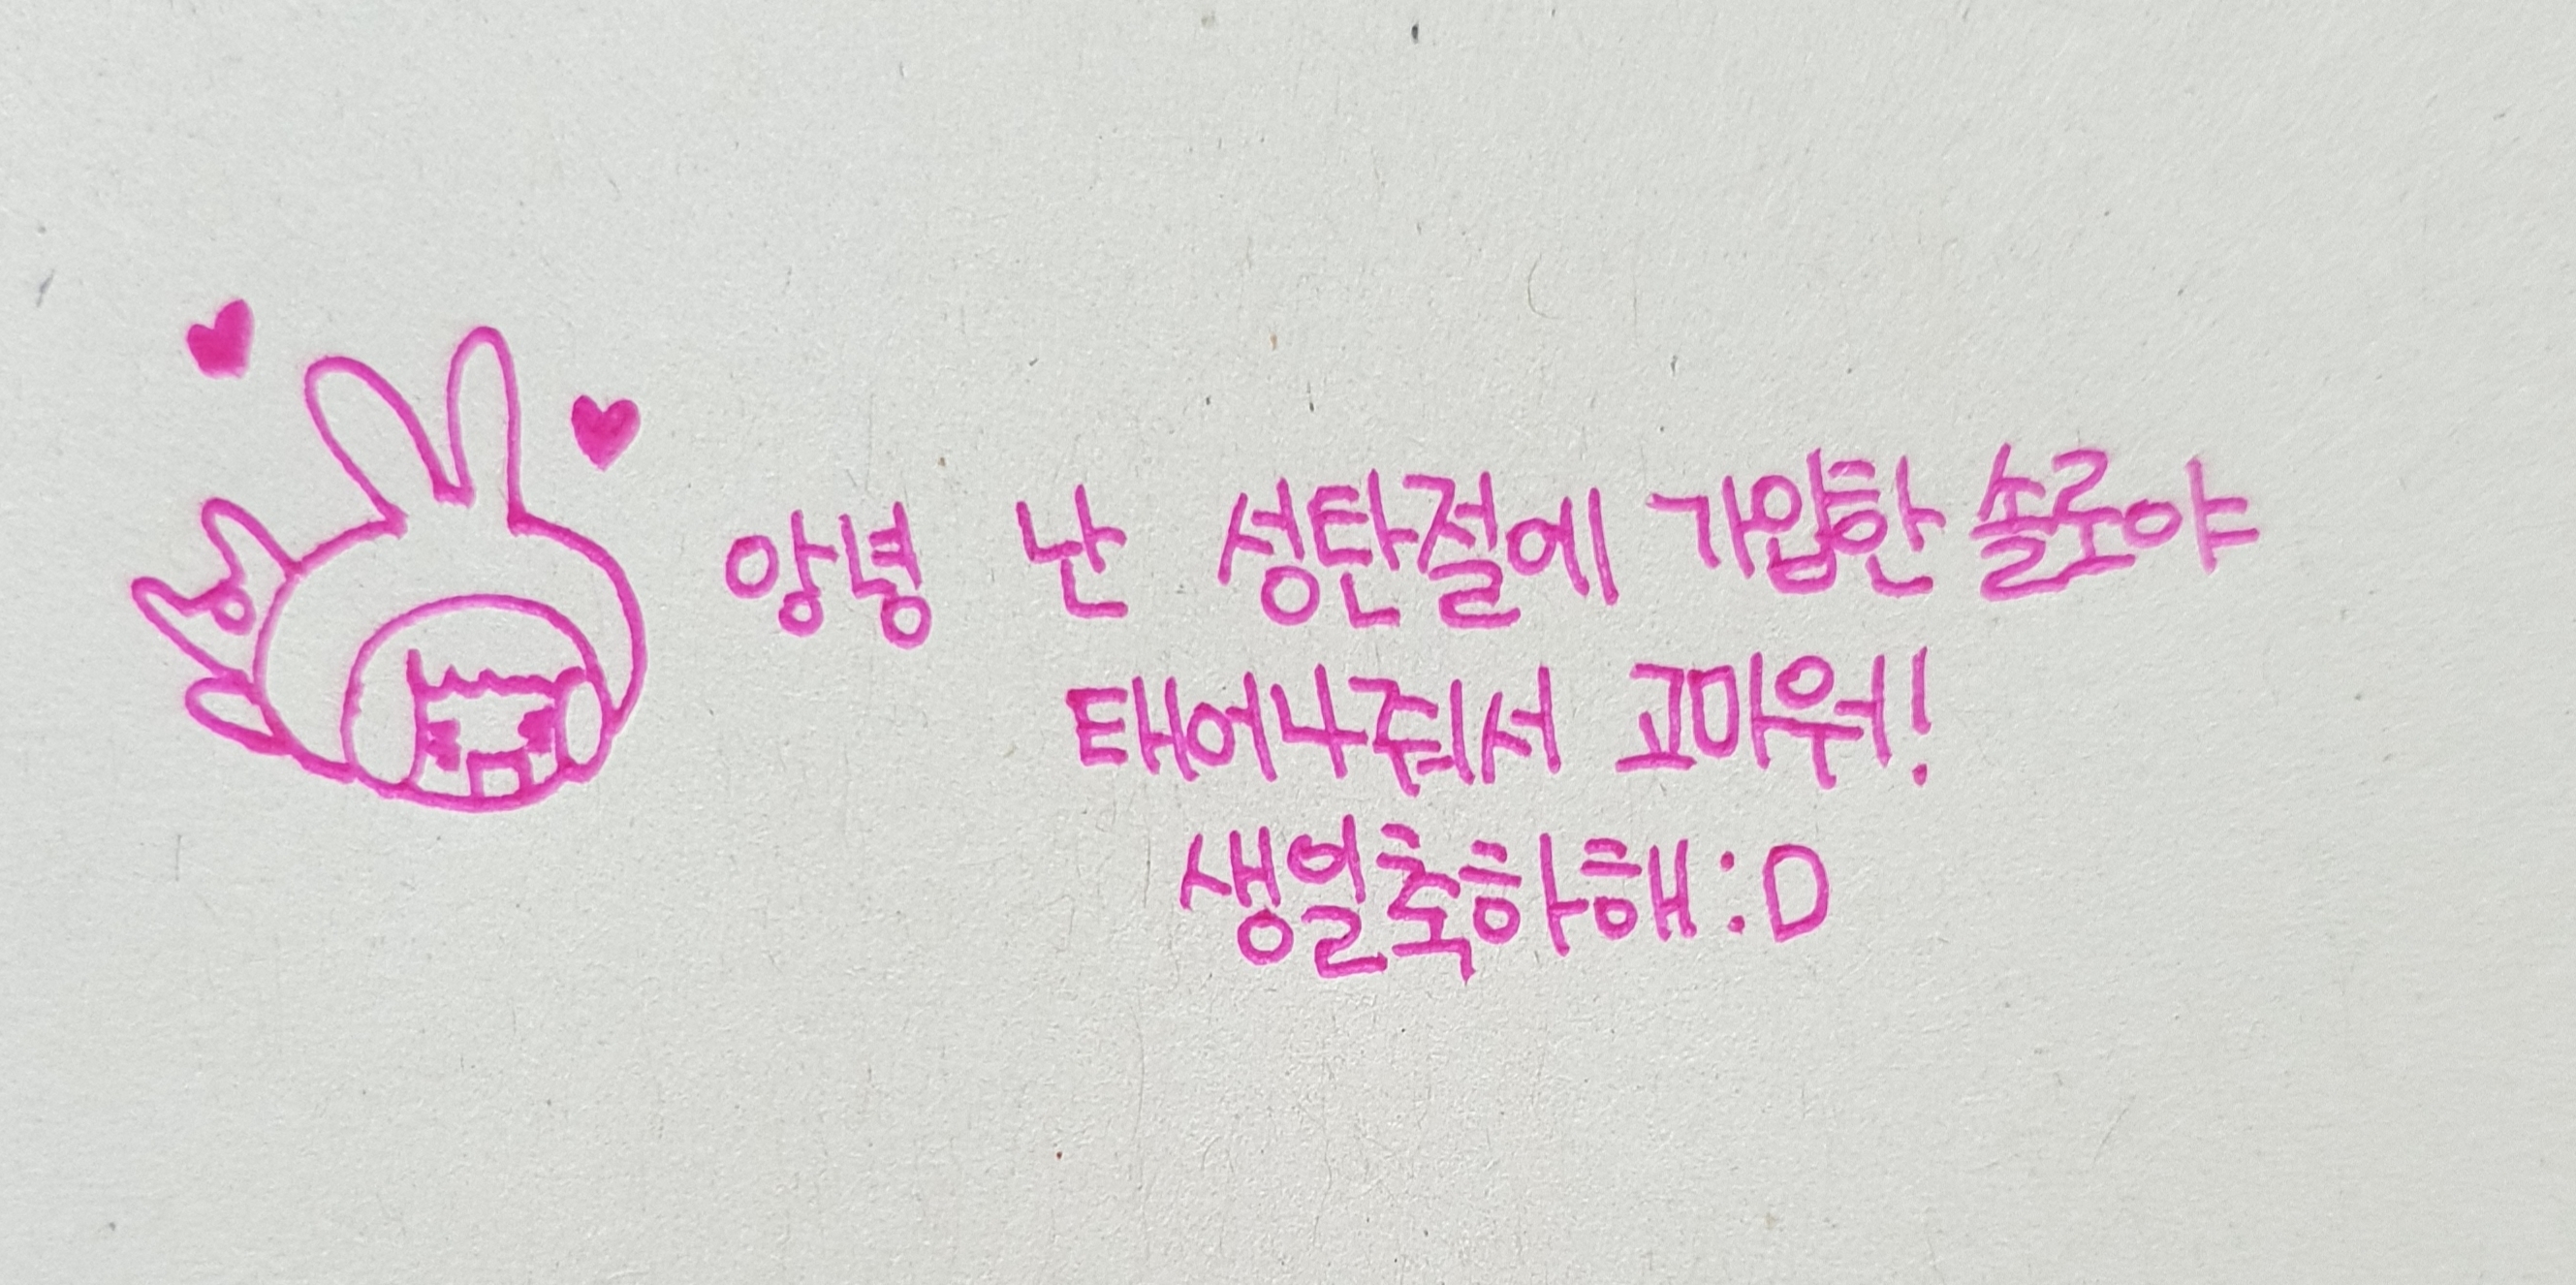 앙녕 난 성탄절에 가입한 솔로야
태어나줘서 고마워!
생일축하해:D